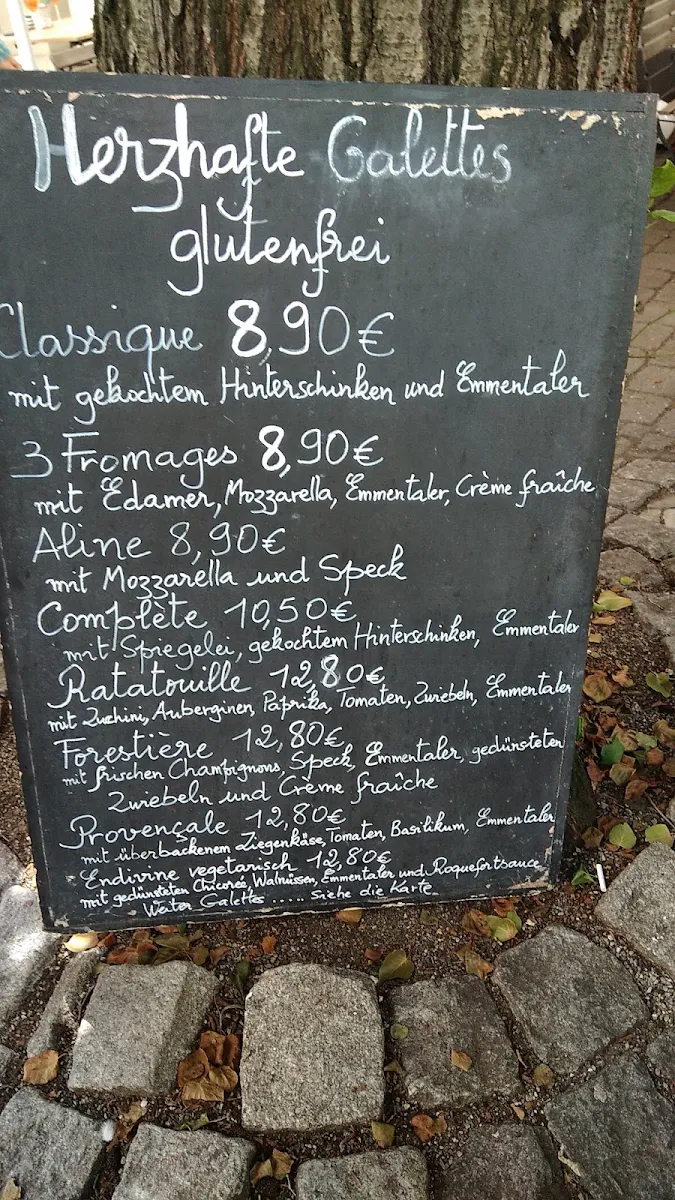 Herzhafte Galettes
glutenfrei
Classique 8,90€
mit gekochtem Hinterschinken und Emmentaler
3 Fromages 8,90€
mit Edamer, Mozzarella, Emmentaler, Crème fraîche
Aline 8,90€
mit Mozzarella und Speck
Complète 10,50€
mit Spiegelei, gekochtem Hinterschinken, Emmentaler
Ratatouille 12,80€
mit Zuchini, Auberginen, Paprika, Tomaten, Zwiebeln, Emmentaler
Forestière 12,80€
mit frischen Champignons, Speck, Emmentaler, gedünsteten
Zwiebeln und Crème fraîche
Provençale 12,80€
mit überbackenem Ziegenkäse, Tomaten, Basilikum, Emmentaler
Endivine vegetarisch 12,80€
mit gedünsteten Chicoreé, Walnüssen, Emmentaler und Roquefortsauce
Weiter Galettes ..... siehe die Karte